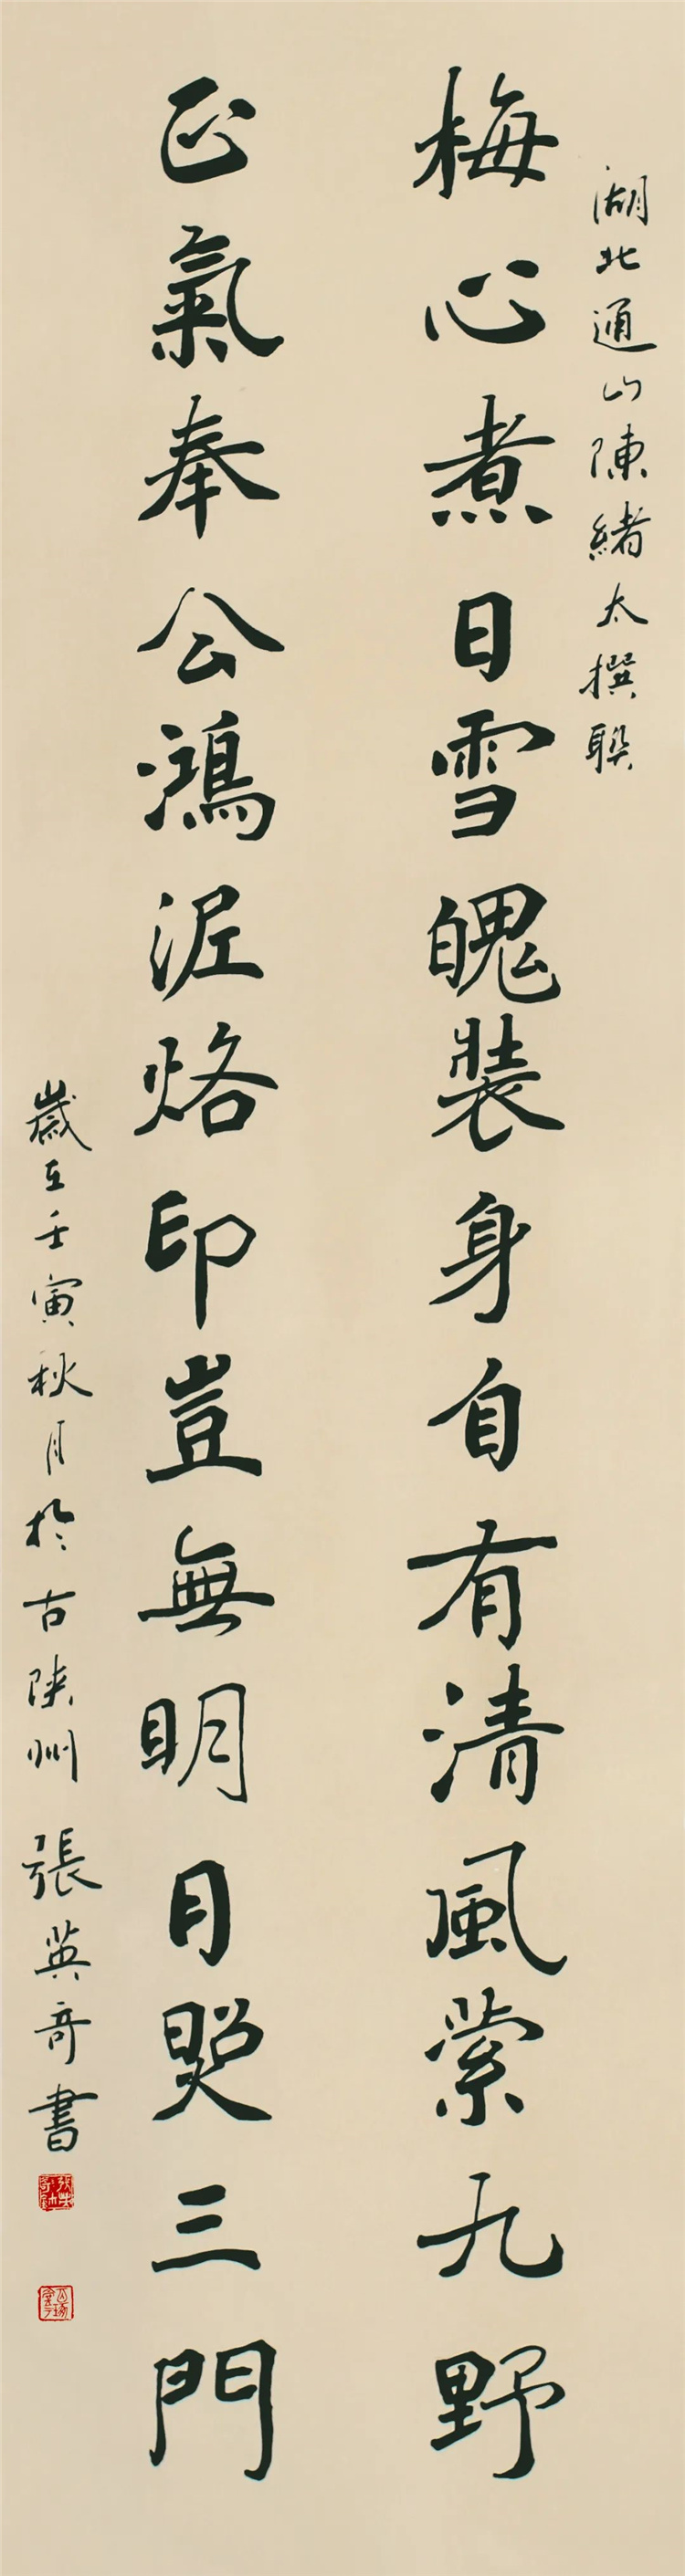 湖北通山陳緒太撰聯
梅心煮日雪魄裝身自有清風縈九野
正氣奉公鴻泥烙印豈無明月照三門
歲在壬寅秋月於古陝州張英奇書